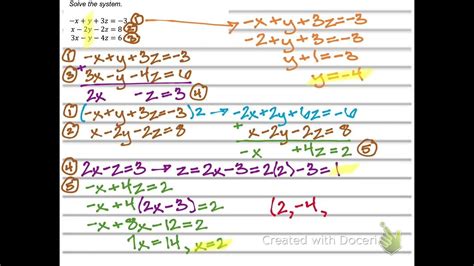 Solve the system.
-x + y + 3z = -3 ①
x - 2y - 2z = 8 ②
3x - y - 4z = 6 ③
-x+y+3z=-3
-2+y+3=-3
y+1=-3
y=-4
① -x+y+3z=-3
③ + 3x-y-4z=6
2x -z=3 ④
① (-x+y+3z=-3)2 → -2x+2y+6z=-6
② x-2y-2z=8 + x-2y-2z=8
-x +4z=2 ⑤
④ 2x-z=3 → z=2x-3=2(2)-3=1
⑤ -x+4z=2
-x+4(2x-3)=2 (2,-4,
-x+8x-12=2
7x=14, x=2
Created with Doceri